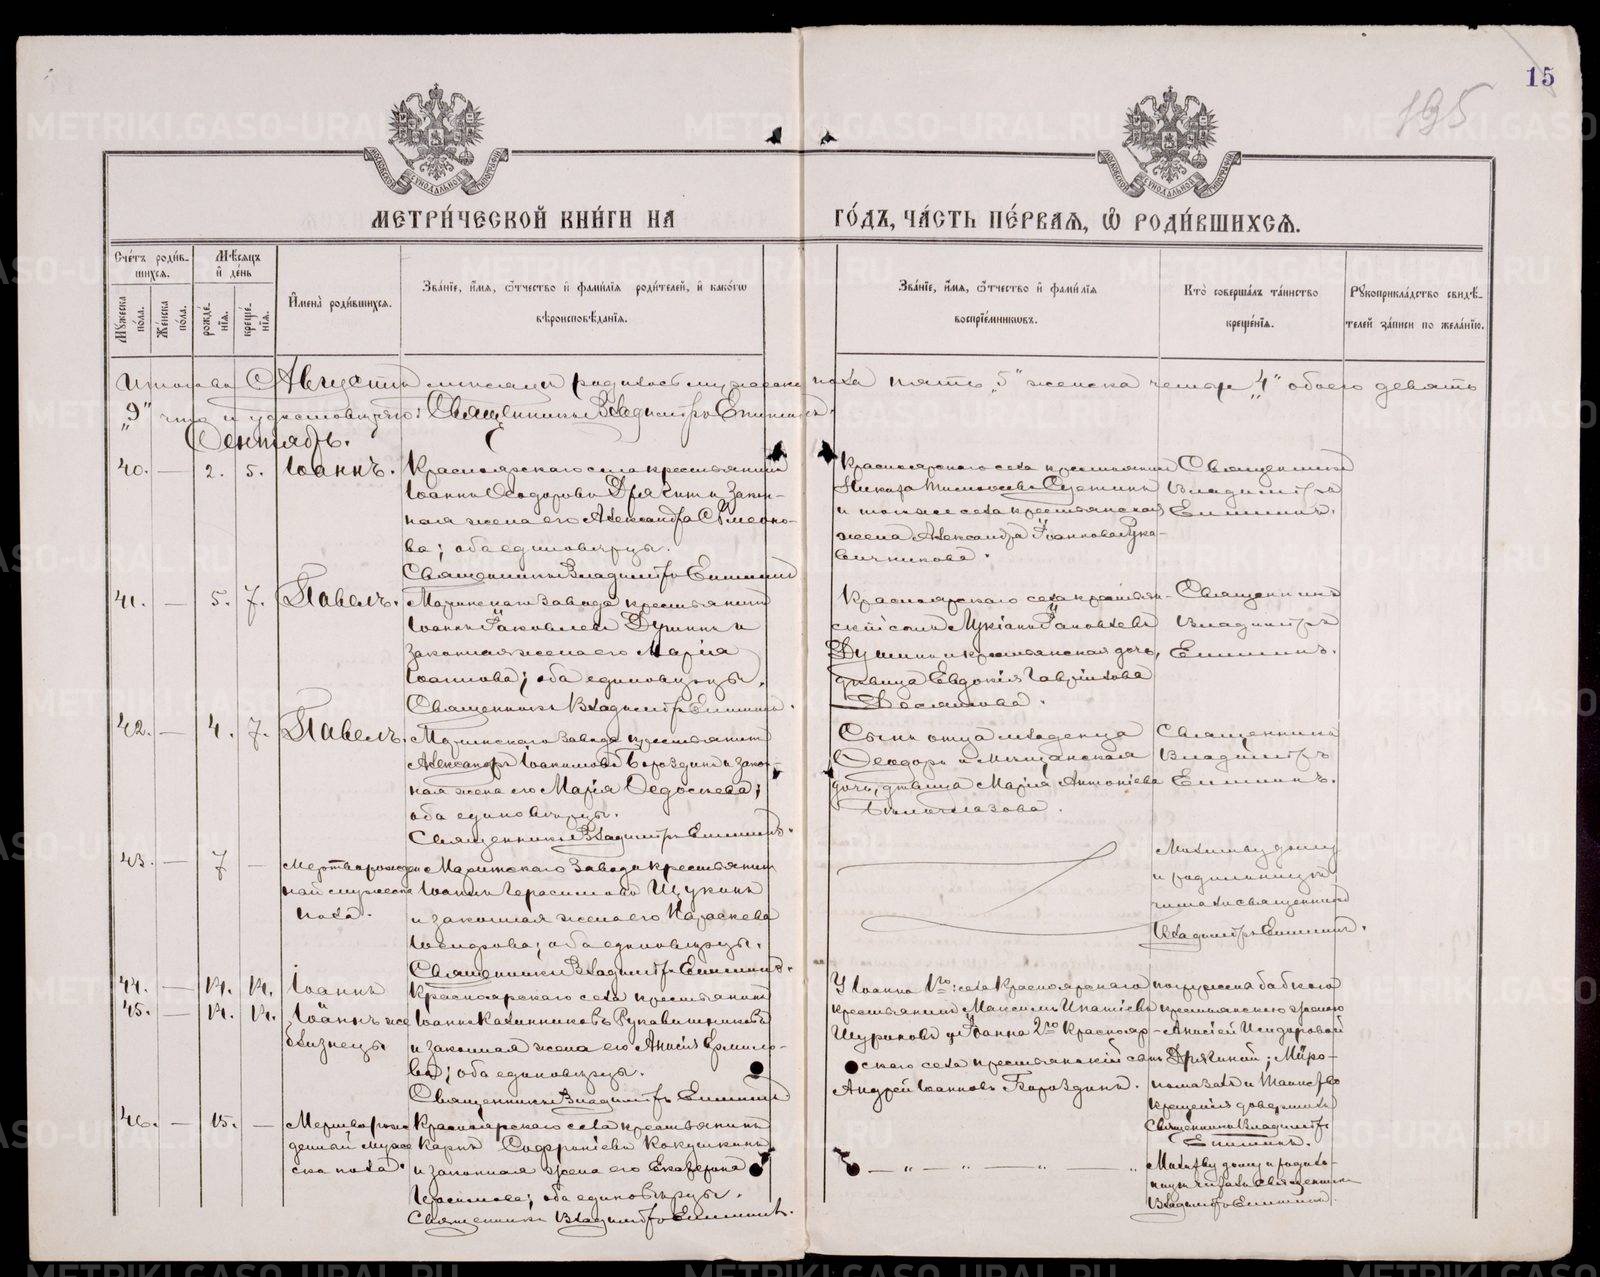 15
195
МОСКОВСКОЙ СУНОДАЛЬНОЙ ТИПОГРАФІИ
МОСКОВСКОЙ СУНОДАЛЬНОЙ ТИПОГРАФІИ
МЕТРИ́ЧЕСКОЙ КНИ́ГИ НА ГО́ДЪ, ЧА́СТЬ ПЕ́РВАѦ, Ѽ РОДИ́ВШИХСѦ.
Счетъ роди́в-
шихся.
Мѣсяцъ
и день
Мꙋжеска
пола.
Женска
пола.
рожде-
нія.
креще-
нія.
Имена роди́вшихся.
Зва́ніе, имя, ѻтчество и фами́лія роди́телей, и како́гѡ
вѣроисповѣданія.
Зва́ніе, имя, ѻтчество и фами́лія
воспріе́мниковъ.
Кто совершалъ таинство
крещенія.
Рꙋкоприкла́дство свидѣ-
телей за́писи по жела́нію.
Итого въ Августѣ месяцѣ родилось мужеска пола пять „5" женска четыре „4" обоего девять
„9" что и удостовѣряю: Священникъ Владимiръ Епишинъ.
Сентябрь.
40. — 2. 5. Іоаннъ.
Красноярскаго села крестьянинъ
Іоаннъ Ѳеодоровъ Дрягинъ и закон-
ная жена его Александра Сѵмеоно-
ва; оба единовѣрцы.
Священникъ Владимiръ Епишинъ
Красноярскаго села крестьянинъ
и тогоже села крестьянская
жена Александра Іоаннова Рука-
вишникова.
Священникъ
Владимiръ
Епишинъ.
41. — 5. 7. Павелъ.
Маринскаго завода крестьянинъ
Іоаннъ Іаковлевъ Душинъ и
законная жена его Марія
Іоаннова; оба единовѣрцы.
Священникъ Владимiръ Епишинъ.
Красноярскаго села крестьян-
скій сынъ Лукіанъ Іаковлевъ
Душинъ и крестьянская дочь,
дѣвица Евдокія Гавріилова
Священникъ
Владимiръ
Епишинъ.
42. — 4. 7. Павелъ.
Маринскаго завода крестьянинъ
Александръ Іоакимовъ Бороздинъ и закон-
ная жена его Марія Ѳедосѣева;
оба единовѣрцы.
Священникъ Владимiръ Епишинъ.
Сынъ отца младенца
Ѳеодоръ и мѣщанская
дочь, дѣвица Марія Антоніева
Бѣлоглазова.
Священникъ
Владимiръ
Епишинъ.
43. — 7 —
Мертворожден
ный мужеска
пола.
Маринскаго завода крестьянинъ
Іоаннъ Герасимовъ Щукинъ
и законная жена его Параскева
Исидорова; оба единовѣрцы.
Священникъ Владимiръ Епишинъ.
Молитву дому
и родильницѣ
читалъ священникъ
Владимiръ Епишинъ.
44. — 14. 14. Іоаннъ
45. — 14. 14. Іоаннъ же
близнецы.
Красноярскаго села крестьянинъ
Іоаннъ Калинниковъ Рукавишниковъ
и законная жена его Анисія Ермило-
ва; оба единовѣрцы.
Священникъ Владимiръ Епишинъ
У Іоанна 1го: села Красноярскаго
крестьянинъ Максимъ Игнатіевъ
Шураковъ у Іоанна 2го Краснояр-
скаго села крестьянскій сынъ
Андрей Іоанновъ Бороздинъ.
погружена бабкою
крестьянскою женою
Анисіей Исидоровой
Дрягиной; Мѵро-
помазалъ и таинство
крещенія довершилъ
Священникъ Владимiръ
Епишинъ.
46. — 15. —
Мертворож
денный муже
ска пола.
Красноярскаго села крестьянинъ
Карпъ Софроніевъ Кокушкинъ
и законная жена его Екатерина
Герасимова; оба единовѣрцы.
Священникъ Владимiръ Епишинъ.
— „ — „ — „ — „
Молитву дому и родиль-
ницѣ читалъ священникъ
Владимiръ Епишинъ